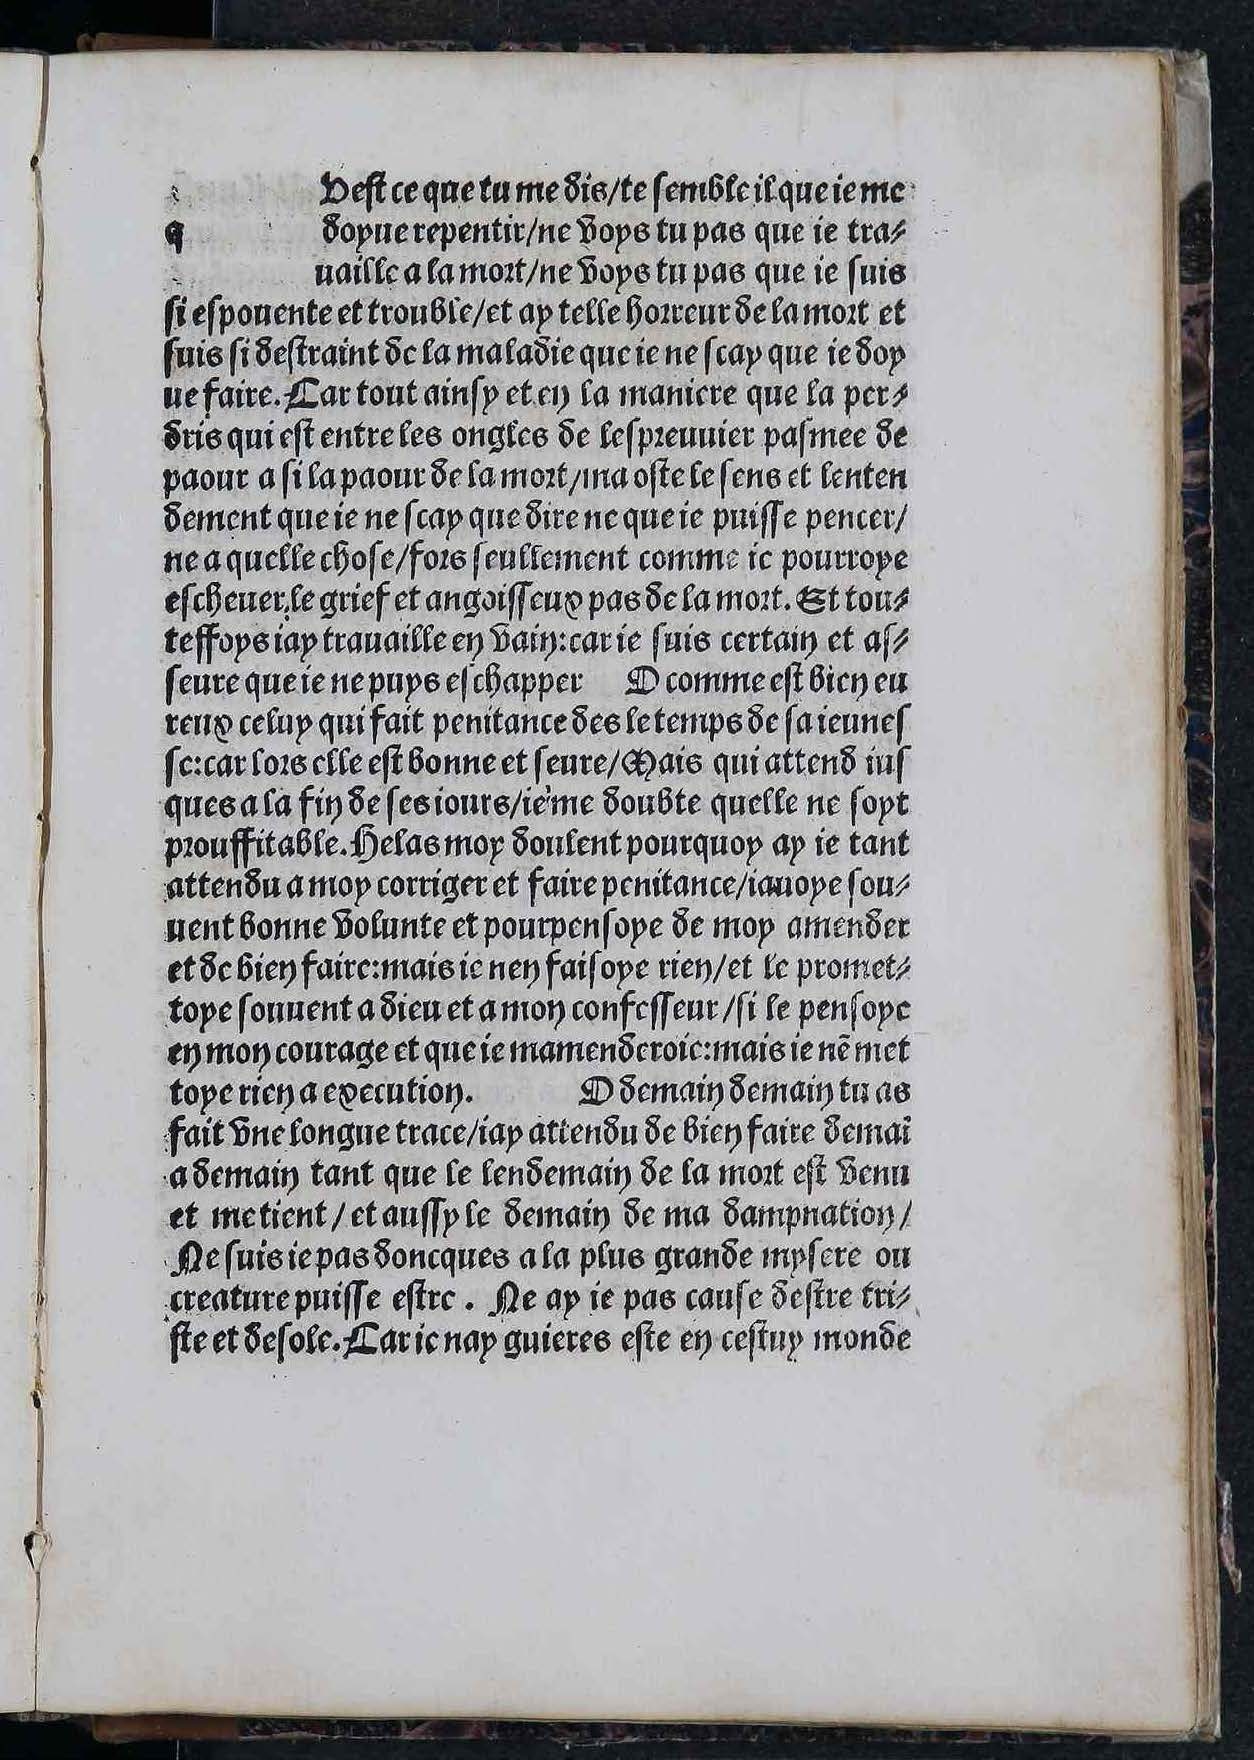 Vest ce que tu me dis/te semble il que ie me
q doyue repentir/ne voys tu pas que ie tra⸗
uaille a la mort/ne voys tu pas que ie suis
si espouente et trouble/et ay telle horreur de la mort et
suis si destraint de la maladie que ie ne scay que ie doy
ue faire. Car tout ainsy et en la maniere que la per⸗
dris qui est entre les ongles de lespreuuier pasmee de
paour a si la paour de la mort/ma oste le sens et lenten
dement que ie ne scay que dire ne que ie puisse pencer/
ne a quelle chose/fors seullement comme ie pourroye
escheuer le grief et angoisseux pas de la mort. Et tou⸗
teffoys iay trauaille en vain:car ie suis certain et as⸗
seure que ie ne puys eschapper O comme est bien eu
reux celuy qui fait penitance des le temps de sa ieunes
se:car lors elle est bonne et seure/Mais qui attend ius
ques a la fin de ses iours/ie me doubte quelle ne soyt
prouffitable. Helas moy doulent pourquoy ay ie tant
attendu a moy corriger et faire penitance/iauoye sou⸗
uent bonne volunte et pourpensoye de moy amender
et de bien faire:mais ie nen faisoye rien/et le promet⸗
toye souuent a dieu et a mon confesseur/si le pensoye
en mon courage et que ie mamenderoie:mais ie nē met
toye rien a execution. O demain demain tu as
fait vne longue trace/iay attendu de bien faire demaī
a demain tant que le lendemain de la mort est venu
et me tient/et aussy le demain de ma dampnation/
Ne suis ie pas doncques a la plus grande mysere ou
creature puisse estre. Ne ay ie pas cause destre tri⸗
ste et desole. Car ie nay guieres este en cestuy monde